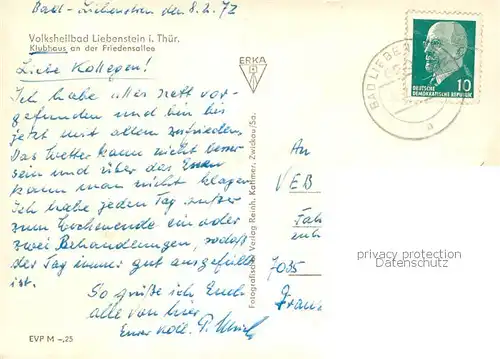 Bad-Liebenstein den 8.2.72
Volksheilbad Liebenstein i. Thür.
Klubhaus an der Friedensallee
Liebe Kollegen!
Ich habe alles nett vor-
gefunden und bin bis
jetzt mit allem zufrieden.
Das Wetter kann nicht besser
sein und über das Essen
kann man nicht klagen
Ich habe jeden Tag außer
zum Wochenende ein oder
zwei Behandlungen, sodaß
der Tag immer gut ausgefüllt
ist.
So grüße ich Euch
alle von hier
Euer Koll. P.
EVP M -,25
ERKA
Fotografischer Verlag Reinh. Kallmer, Zwickau/Sa.
DEUTSCHE
DEMOKRATISCHE REPUBLIK
10
BAD LIEBE
a
An
VEB
7035
privacy protection
Datenschutz